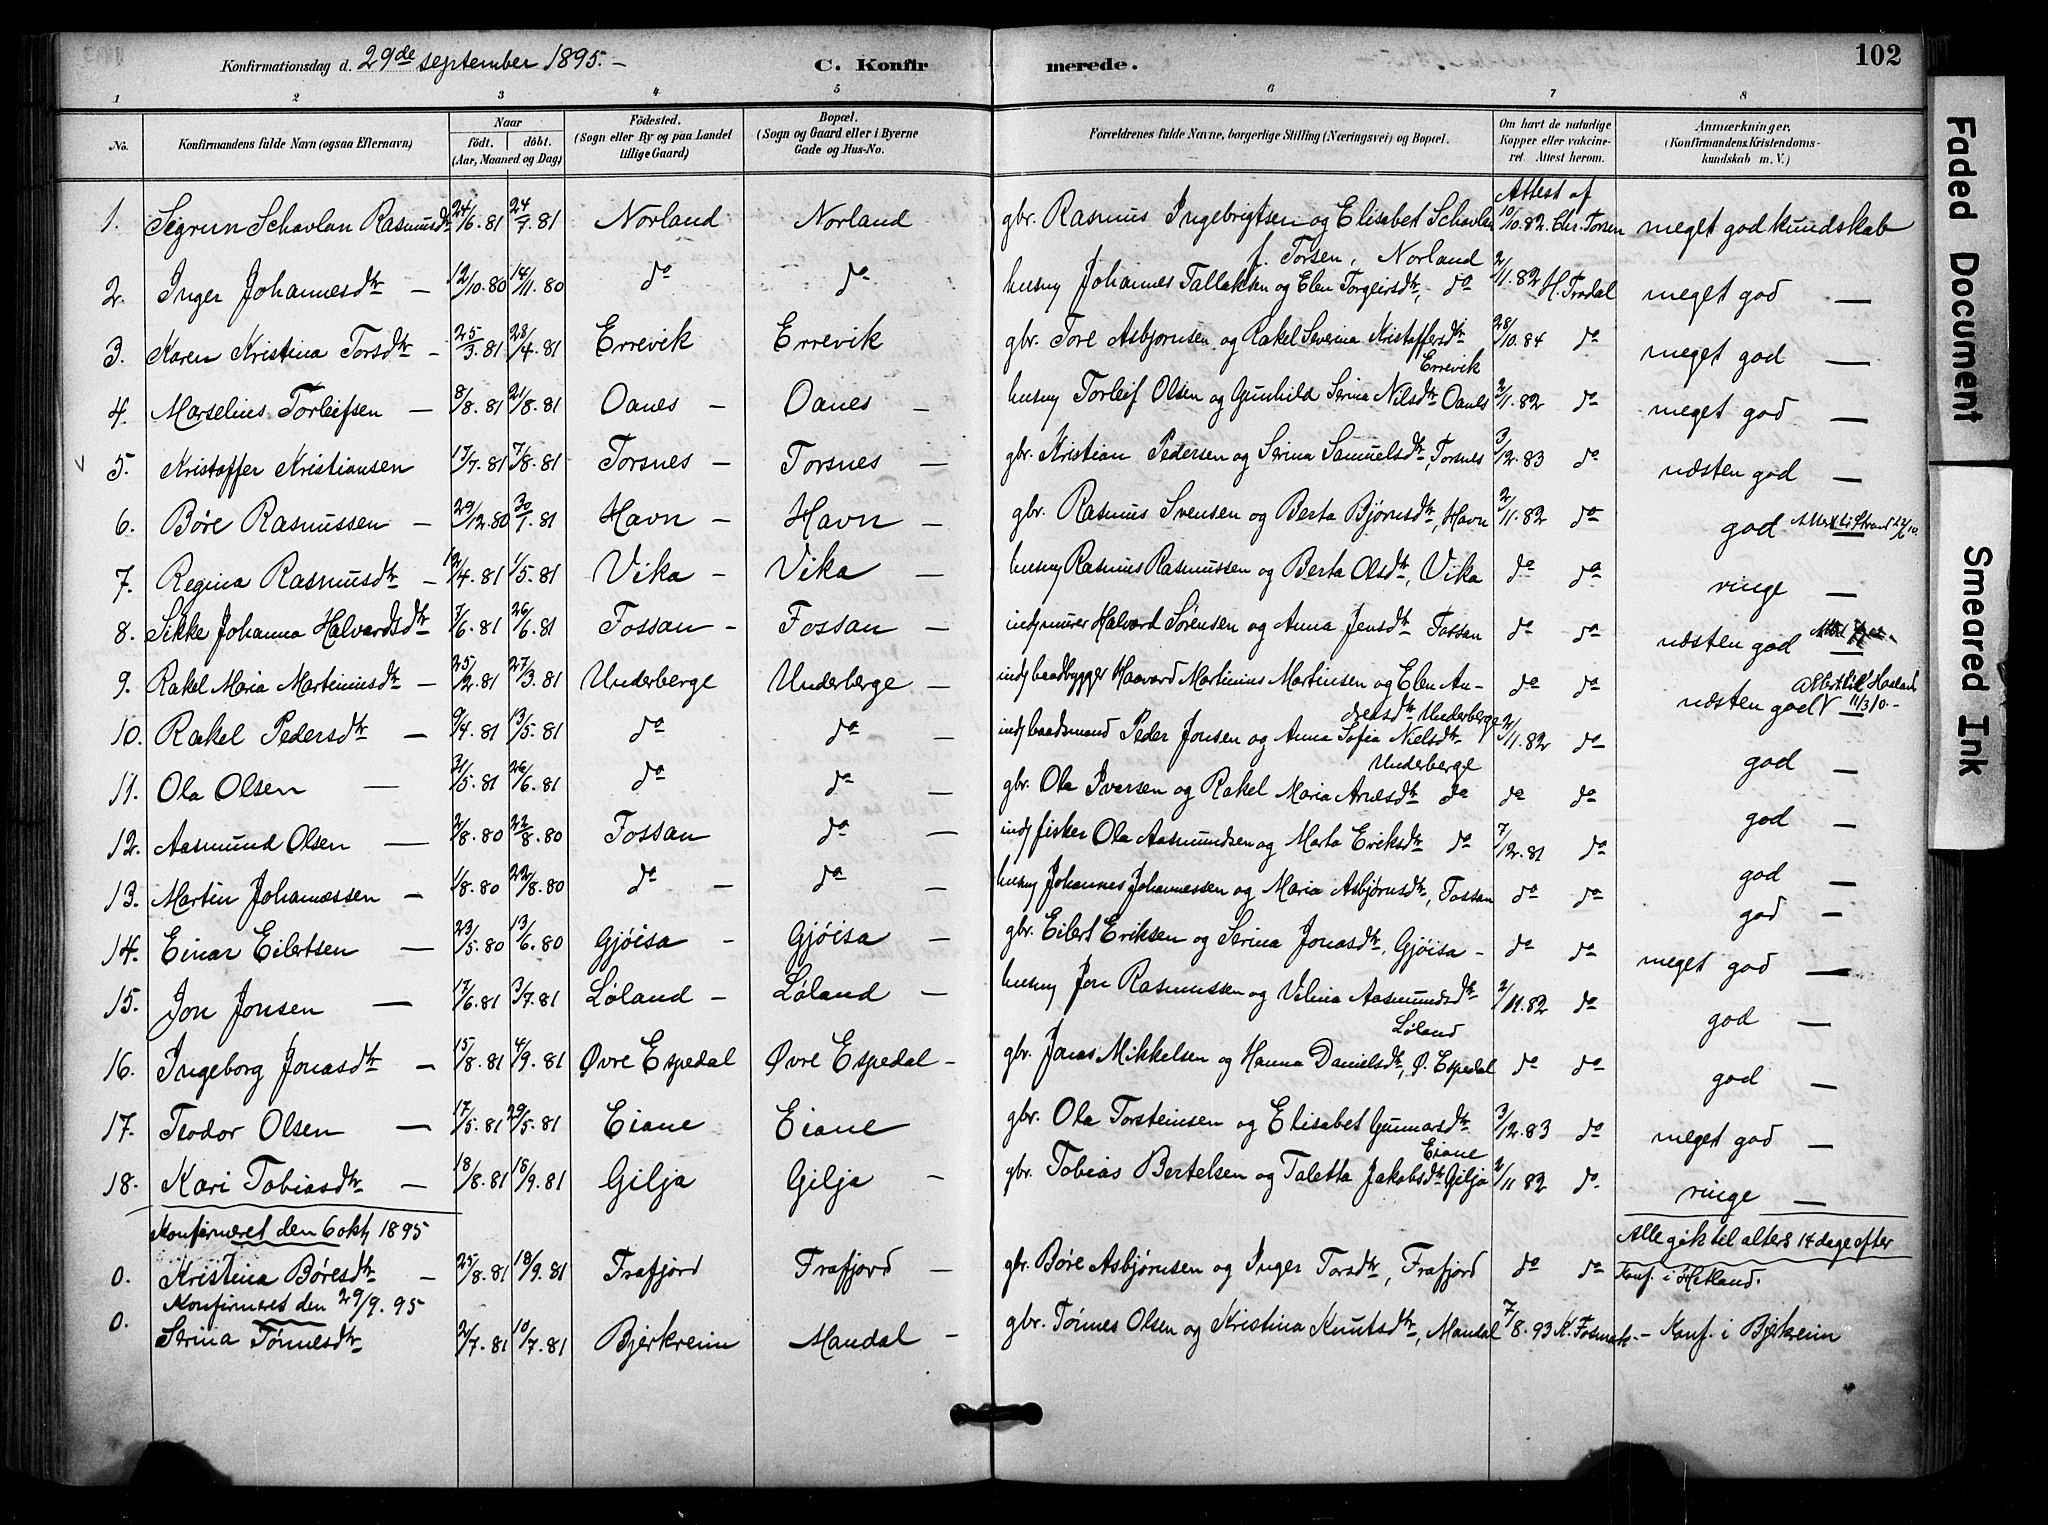 Konfirmationsdag d. 29de september 1895. –
C. Konfirmerede.
102
1 2 3 4 5 6 7 8
No.
Konfirmandens fulde Navn (ogsaa Efternavn)
Naar
födt. döbt.
(Aar, Maaned og Dag)
Födested.
(Sogn eller By og paa Landet
tillige Gaard)
Bopæl.
(Sogn og Gaard eller i Byerne
Gade og Hus-No.
Forældrenes fulde Navne, borgerlige Stilling (Næringsvei) og Bopæl.
Om havt de naturlige
Kopper eller vakcine-
ret. Attest herom.
Anmærkninger.
(Konfirmandens Kristendoms-
kundskab m. V.)
Attest af
1. Sigrun Schavlan Rasmusdtr 24/6.81 24/7.81 Norland Norland gbr. Rasmus Ingebrigtsen og Elisabet Schavlan 10/10.82. Chr. Torsen meget god kundskab
f. Torsen, Norland
2. Inger Johannesdtr – 12/10.80 14/11.80 do do husmy Johannes Tallaksen og Elen Torgeirsdtr, do 2/11.82 H. Tradal meget god —
3. Karen Kristina Torsdtr – 25/3.81 23/4.81 Errevik Errevik gbr. Tore Asbjørnsen og Rakel Severina Kristoffersdtr 28/10.84 do meget god —
Errevik
4. Marselius Torleifsen – 8/8.81 21/8.81 Oanes – Oanes – husmy Torleif Olsen og Gunhild Serina Nilsdtr Oanes 2/11.82 do meget god —
5. Kristoffer Kristiansen 17/7.81 7/8.81 Torsnes – Torsnes – gbr. Kristian Pedersen og Serina Samuelsdtr, Torsnes 3/12.83 do næsten god —
6. Børe Rasmussen – 29/12.80 30/1.81 Havn – Havn – gbr. Rasmus Svensen og Berta Bjørnsdtr, Havn 2/11.82 do god — Strand 22/10.
7. Regina Rasmusdtr – 12/4.81 1/5.81 Vika – Vika – husmy Rasmus Rasmussen og Berta Olsdtr, Vika do do ringe —
8. Sikke Johanna Halvardsdtr 7/6.81 26/6.81 Fossan – Fossan – indj murer Halvard Sørensen og Anna Jensdtr Fossan do do næsten god —
9. Rakel Maria Martiniusdtr – 25/2.81 27/3.81 Underberge Underberge – indj baadbygger Haavard Martinius Martinsen og Elen An- do do næsten god —
dreasdtr, Underberge
10. Rakel Pedersdtr – 9/4.81 13/5.81 do do – indj baadsmand Peder Jonsen og Anna Sofia Nielsdtr 2/11.82 do god —
Underberge
11. Ola Olsen — 31/5.81 26/6.81 do do – gbr. Ola Ivarsen og Rakel Maria Arnesdtr do do do god —
12. Aasmund Olsen — 2/8.80 22/8.80 Fossan do – indj fisker Ola Aasmundsen og Marta Eriksdtr do 7/12.81 do god —
13. Martin Johannessen – 1/8.80 22/8.80 do – do – husmy Johannes Johannessen og Maria Asbjørnsdtr, Fossan do do god –
14. Einar Eilertsen — 23/5.80 13/6.80 Gjöisa – Gjöisa – gbr. Eilert Eriksen og Serina Jonasdtr, Gjöisa – do do meget god —
15. Jon Jonsen — 17/6.81 3/7.81 Løland – Løland – husmy Jon Rasmussen og Velina Aasmundsdtr 2/11.82 do god —
Løland
16. Ingeborg Jonasdtr – 15/8.81 4/9.81 Øvre Espedal Øvre Espedal – gbr. Jonas Mikkelsen og Hanna Danielsdtr, Ø. Espedal do do god —
17. Teodor Olsen — 17/5.81 29/5.81 Eiane Eiane gbr. Ola Torsteinsen og Elisabet Gunnarsdtr 3/12.83 do meget god —
Eiane
18. Kari Tobiasdtr – 18/8.81 18/9.81 Gilja Gilja – gbr. Tobias Bertelsen og Taletta Jakobsdtr Gilja 2/11 82 do. ringe —
Konfirmeret den 6 okt 1895
Alle gik til alters 14 dage efter
0. Kristina Børesdtr – 25/8.81 18/9.81 Frafjord Frafjord – gbr. Børe Asbjørnsen og Inger Torsdtr, Frafjord do do Konf. i Hetland.
Konfirmeret den 29/9.95
0. Serina Tønnesdtr 2/7.81 10/7.81 Bjerkreim Mandal – gbr. Tønnes Olsen og Kristina Knutsdtr, Mandal 7/8.93 K. Fosmark – Konf. i Bjekreim
Faded Document
Smeared Ink